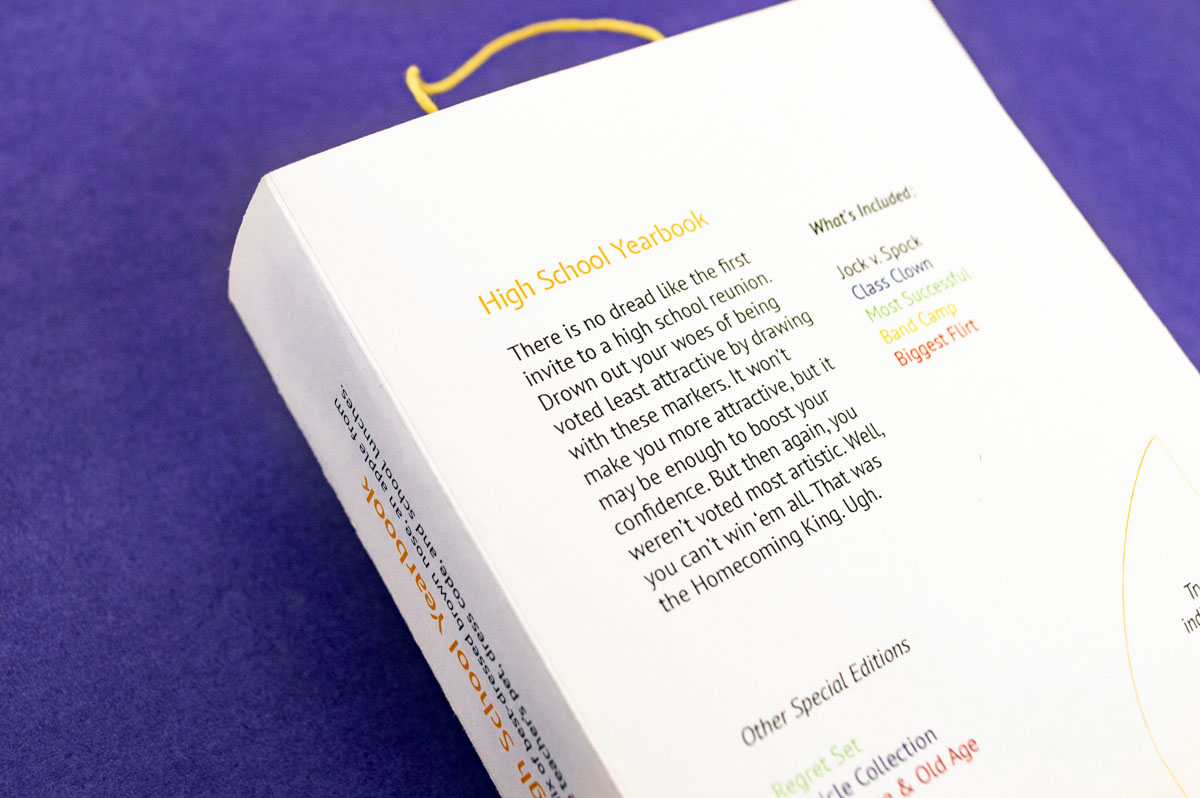 High School Yearbook
There is no dread like the first
invite to a high school reunion.
Drown out your woes of being
voted least attractive by drawing
with these markers. It won't
make you more attractive, but it
may be enough to boost your
confidence. But then again, you
weren't voted most artistic. Well,
you can't win 'em all. That was
the Homecoming King. Ugh.
What's Included:
Jock v. Spock
Class Clown
Most Successful
Band Camp
Biggest Flirt
Other Special Editions
Regret Set
Collection
& Old Age
School Yearbook
of best-dressed brown nose, an apple from
teacher's pet, dress code, and school lunches.